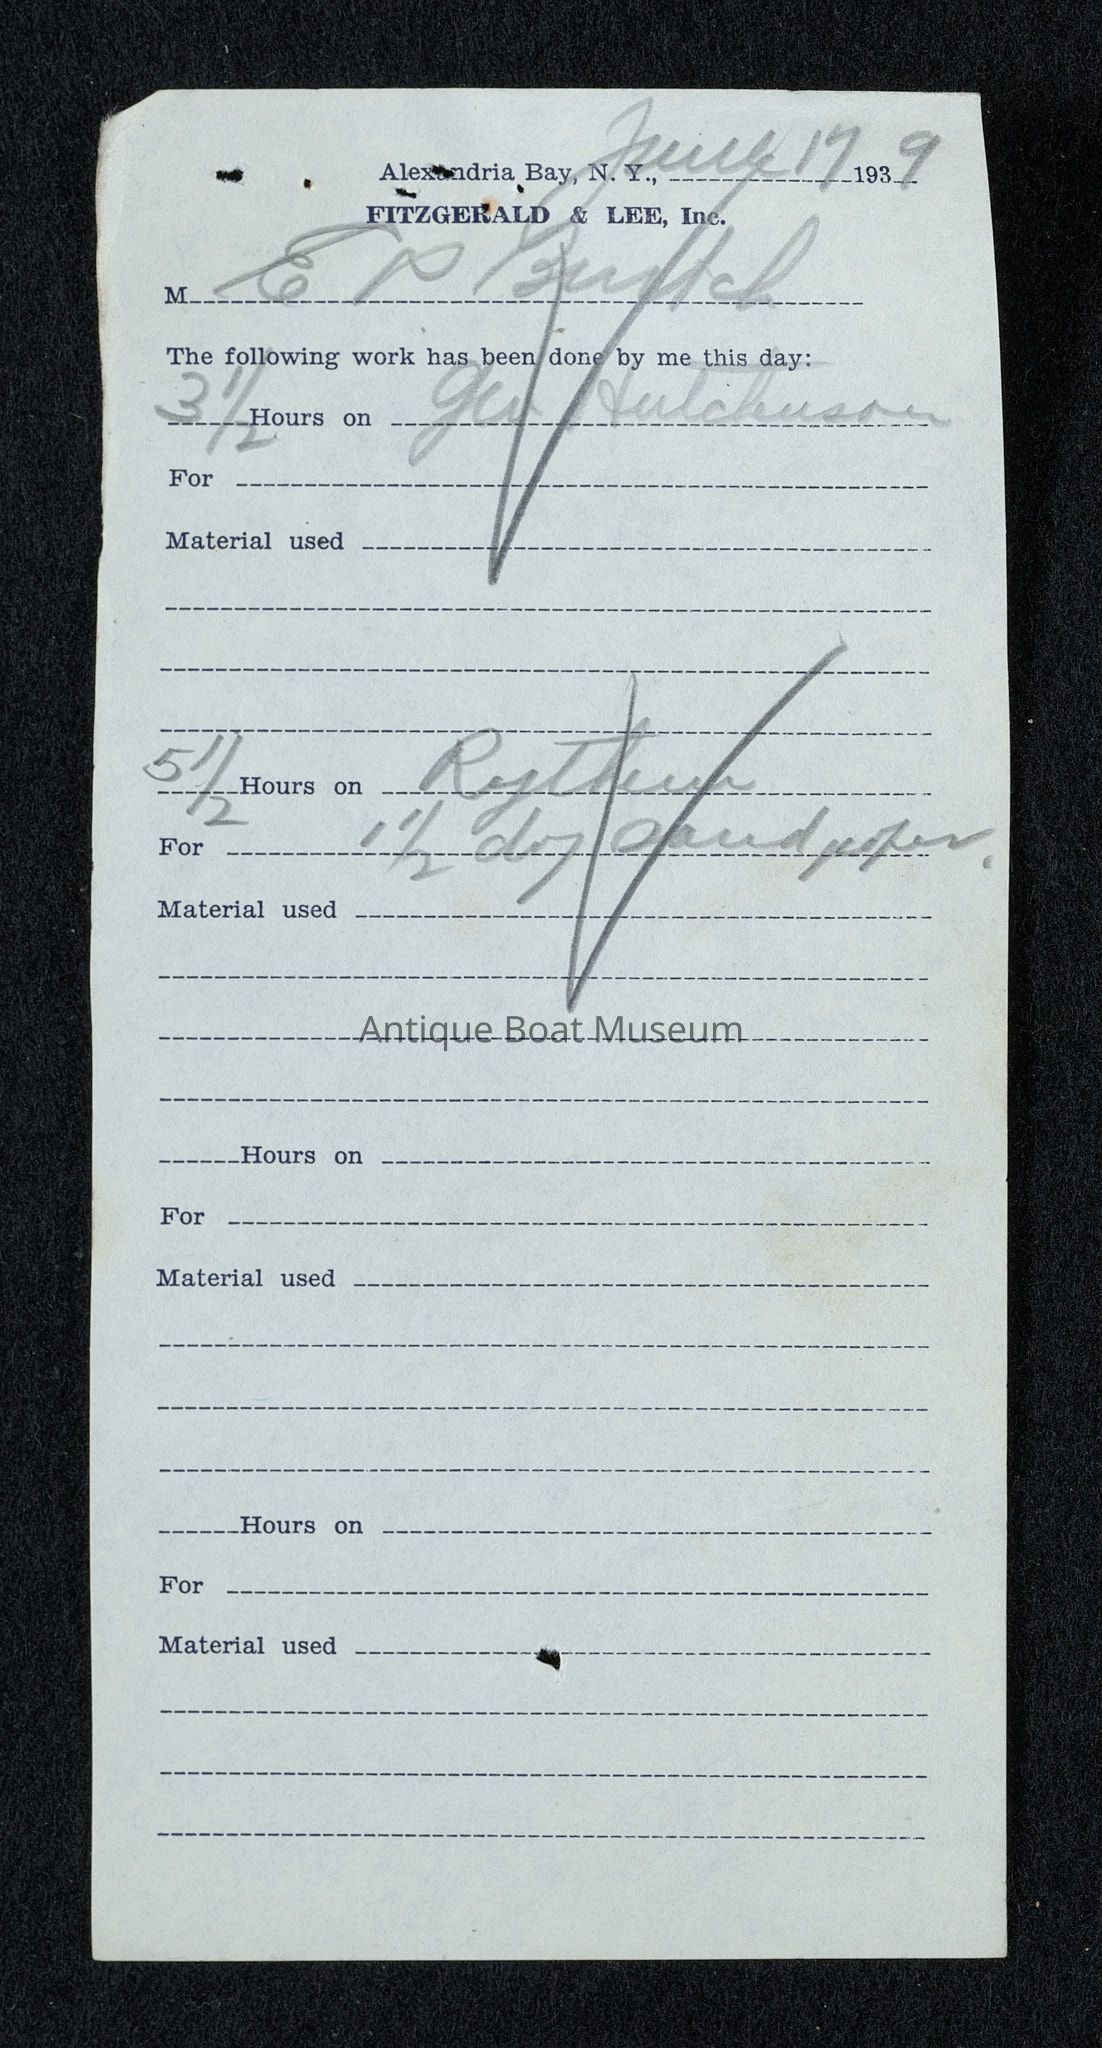 Alexandria Bay, N. Y., June 17 1939
FITZGERALD & LEE, Inc.
M E P
The following work has been done by me this day:
3 1/2 Hours on Geo Hutchinson
For
Material used
5 1/2 Hours on Rythum
For 1 1/2 doz sandpaper.
Material used
Antique Boat Museum
Hours on
For
Material used
Hours on
For
Material used